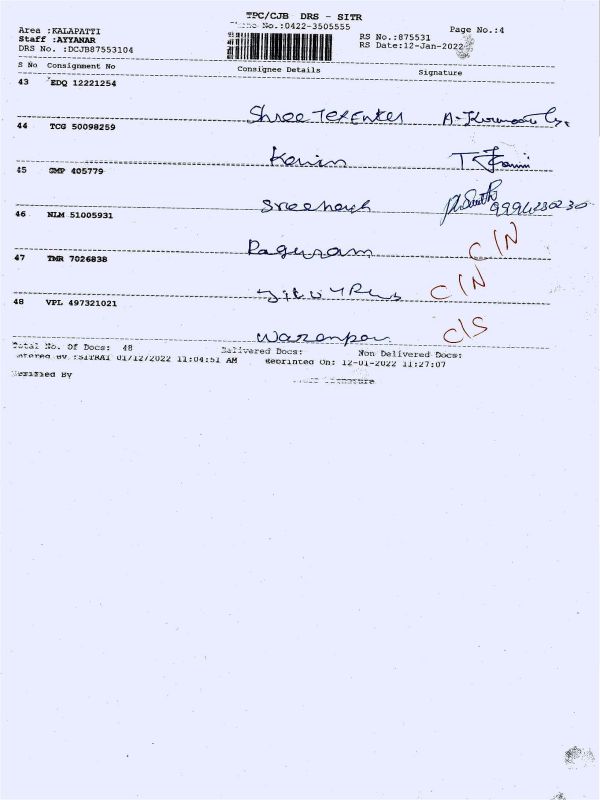 TPC/CJB DRS - SITR
Phone No.:0422-3505555
Area :KALAPATTI
Staff :AYYANAR
DRS No. :DCJB87553104
RS No.:875531
RS Date:12-Jan-2022
Page No.:4
S No Consignment No Consignee Details Signature
43 EDQ 12221254
Shree Tex
44 TCG 50098259
45 SMP 405779
46 NLM 51005931
Raguram C/N
47 TMR 7026838
C/N
48 VPL 497321021
C/S
Total No. Of Docs: 48 Delivered Docs: Non Delivered Docs:
Entered By :SITRAI 01/12/2022 11:04:51 AM Reprinted On: 12-01-2022 11:27:07
Verified By Staff Signature